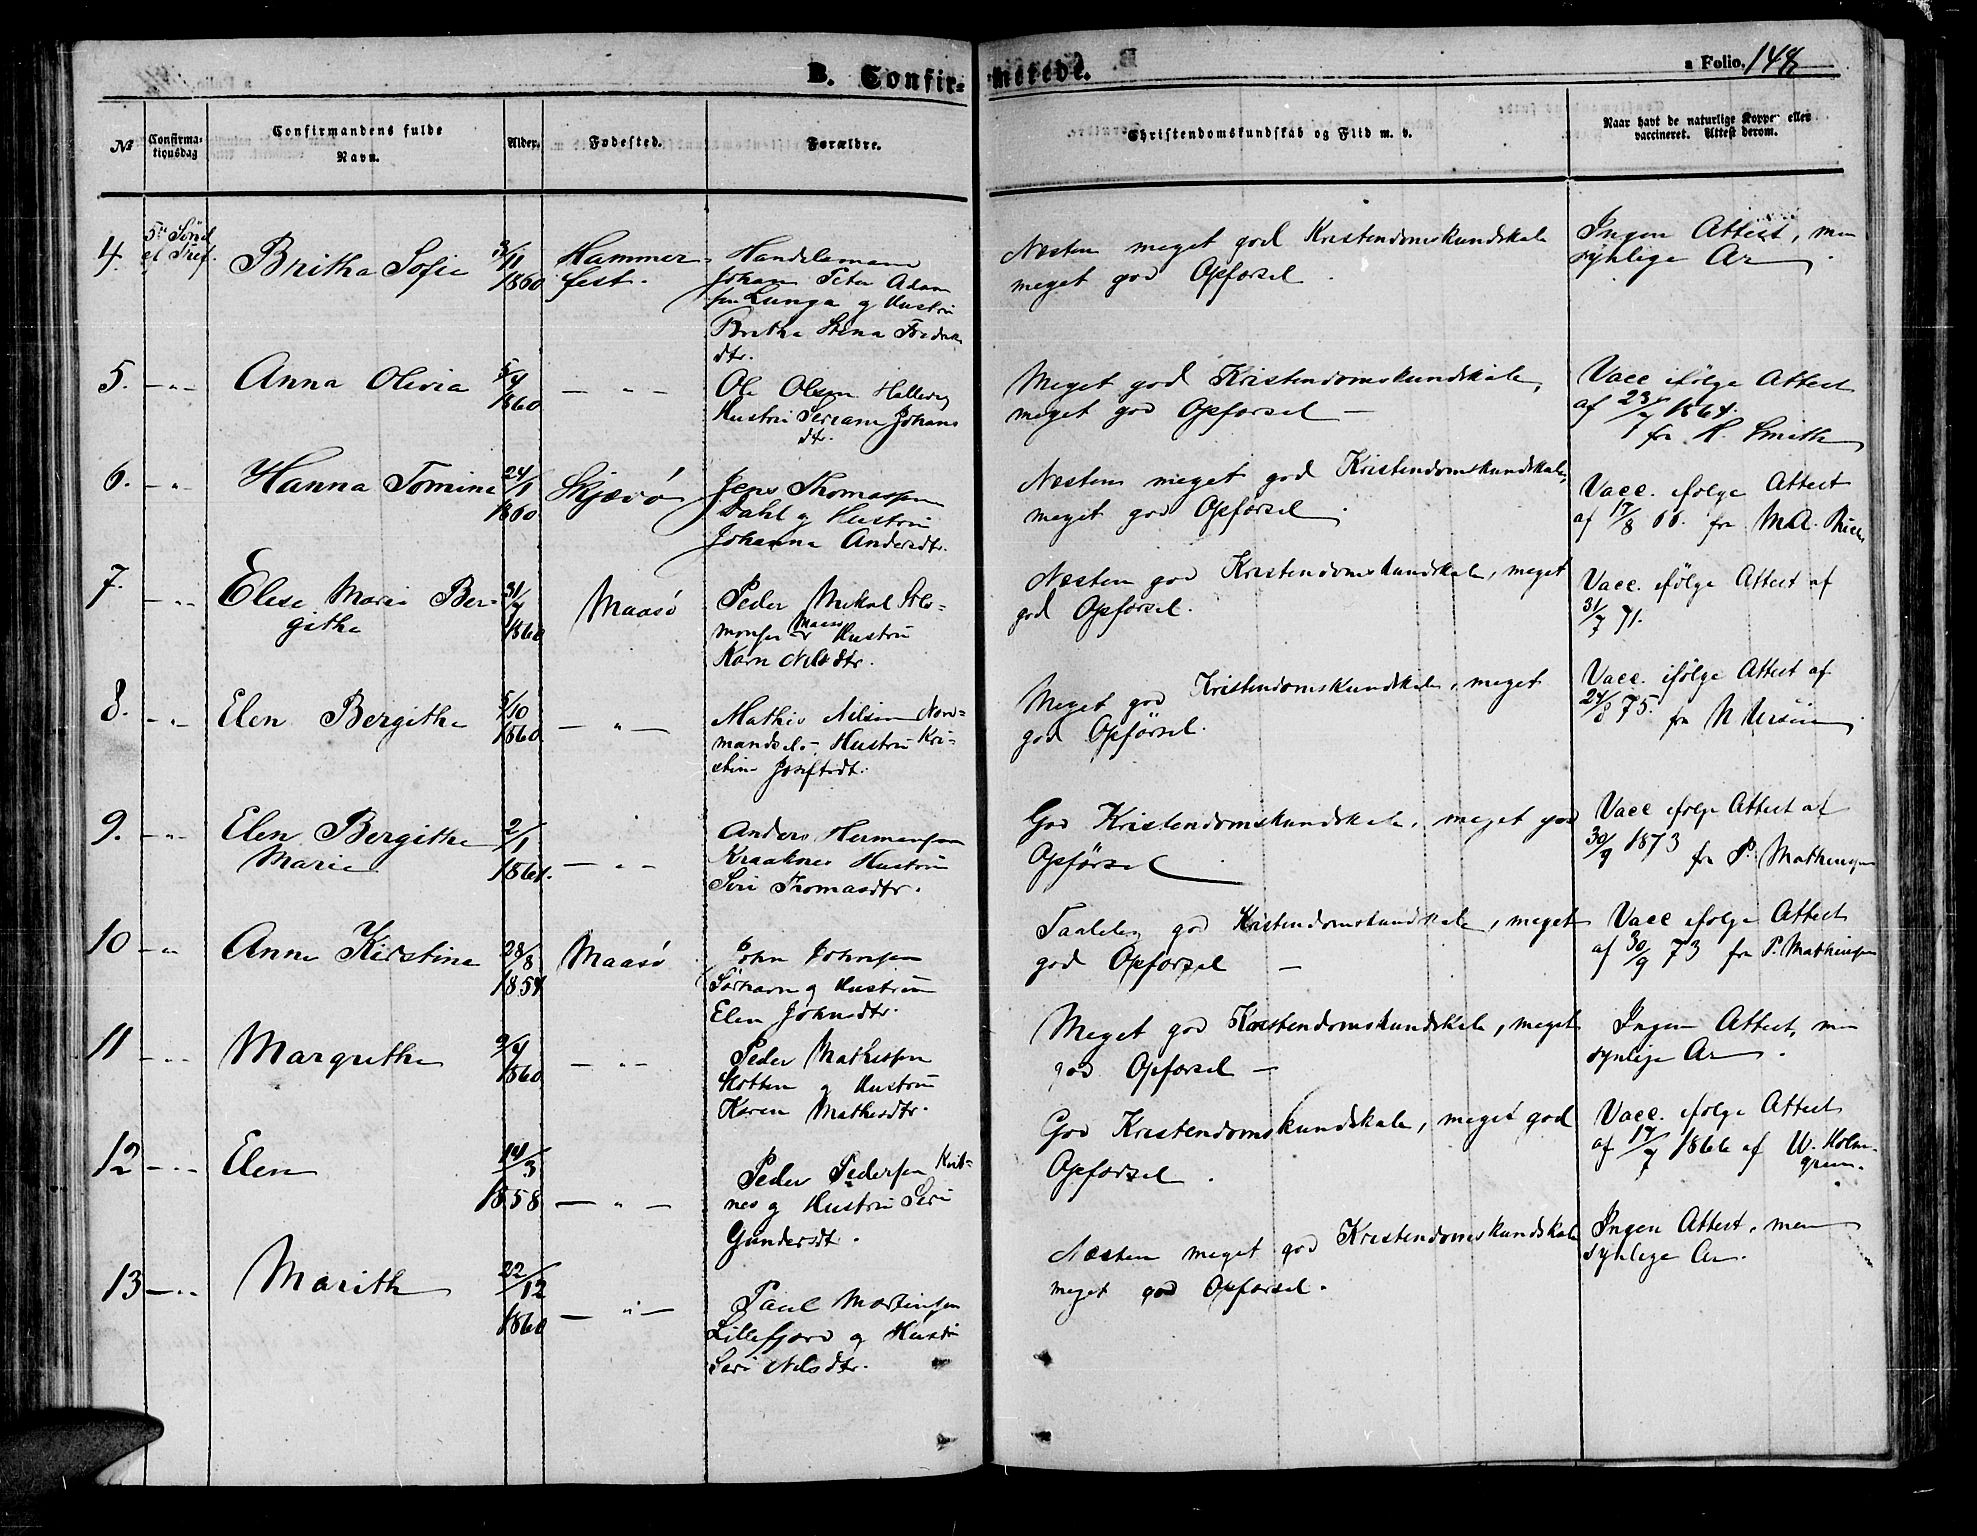 B. Confir-
merede.
a Folio. 148
No
Confirma-
tionsdag
Confirmandens fulde
Navn.
Alder.
Fødested.
Forældre.
Christendomskundskab og Flid m. v.
Naar havt de naturlige Kopper eller
vaccineret. Attest derom.
4. 5te Sönd. ef. Tref. Britha Sofie 3/11 1860 Hammer-
fest.
Handelsmand
Johan Peter Adam-
sen Lunga og Hustru
Britha Stina Fredriks
dtr.
Næsten meget god Kristendomskundskab
meget god Opførsel
Ingen Attest, men
synlige Ar.
5. — " — Anna Olivia 5/4 1860 — " —
Ole Olsen
Hustru Johans
dtr.
Meget god Kristendomskundskab,
meget god Opførsel —
Vacc ifölge Attest
af 23/7 1864.
fra H. Smith
6. — " Hanna Tomine 24/1 1860 Skjævø
Jens Thomassen
Dahl og Hustru
Johanna Andersdtr.
Næsten meget god Kristendomskundskab,
meget god Opførsel.
Vacc. ifölge Attest
af 17/8 66. fra M.A.
7. — " Elese Marie Ber-
githe 31/7 1860 Maasø
Peder Mikal Salo-
monsen Maasø Hustru
Karn Nilsdtr.
Næsten god Kristendomskundskab, meget
god Opførsel.
Vacc. ifölge Attest af
31/7 71.
8. — " Elen Bergithe 5/10 1860 — " —
Mathis Nilsen Nor-
mandselv Hustru Kri-
stine Joseftdt.
Meget god Kristendomskundskab, meget
god Opførsel.
Vacc. ifölge Attest af
24/8 75. fra
9. — " Elen Bergithe
Marie 2/1 1861. — " —
Anders Hermansen
Kraaknes Hustru
Siri Thomasdtr.
God Kristendomskundskab, meget god
Opførsel
Vacc ifølge Attest af
30/9 1873 fra P. Mathiesen
10 — " Anne Kirstine 28/8 1854 Maasø
John Johnsen
Sørharn og Hustru
Elen Johnsdtr.
Taalelig god Kristendomskundskab, meget
god Opførsel —
Vacc ifølge Attest
af 30/9 73 fra P. Mathiesen
11 — " Margrethe 9/4 1860 — " —
Peder Mathissen
Kotten og Hustru
Karen Mathisdtr.
Meget god Kristendomskundskab, meget
god Opførsel —
Ingen Attest, men
synlige Ar.
12 — " Elen 14/3 1858 — " —
Peder Pedersen Kvit-
nes og Hustru Siri
Gundersdt.
God Kristendomskundskab, meget god
Opførsel.
Vacc. ifølge Attest
af 17/7 1866 af W. Holm-
green.
13 — " Marith 22/12 1860 — " —
Paul Mortensen
Lillefjord og Hustru
Siri Nilsdtr.
Næsten meget god Kristendomskundskab
meget god Opførsel.
Ingen Attest, men
synlige Ar.